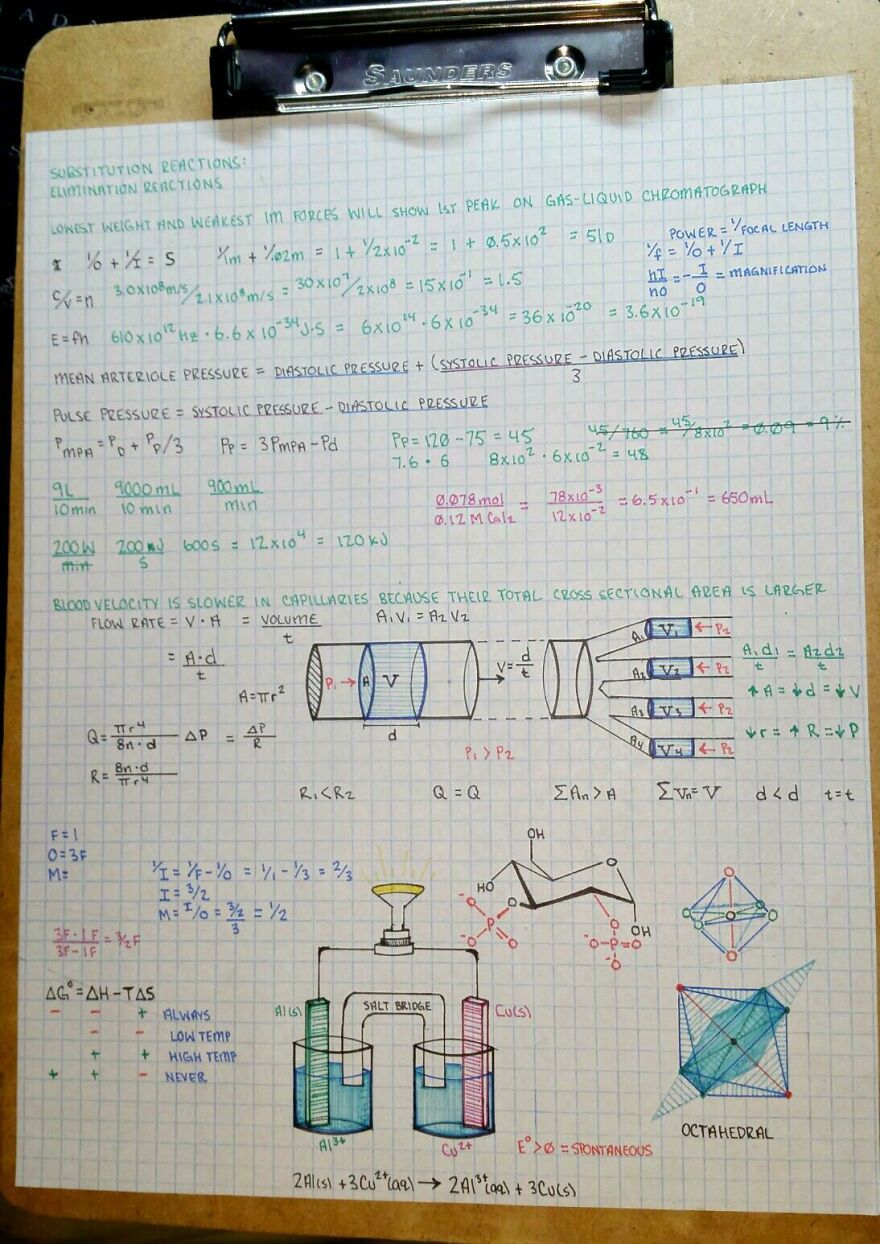 SAUNDERS
SUBSTITUTION REACTIONS:
ELIMINATION REACTIONS
LOWEST WEIGHT AND WEAKEST IM FORCES WILL SHOW 1ST PEAK ON GAS-LIQUID CHROMATOGRAPH
I 1/O + 1/I = S 1/1m + 1/.02m = 1 + 1/2x10⁻² = 1 + 0.5x10² = 51D
POWER = 1/FOCAL LENGTH
1/f = 1/O + 1/I
hI/hO = -I/O = MAGNIFICATION
C/V = n 3.0x10⁸m/s/2.1x10⁸m/s = 30x10⁷/2x10⁸ = 15x10⁻¹ = 1.5
E=fh 610x10¹²Hz · 6.6x10⁻³⁴J·S = 6x10¹⁴ · 6x10⁻³⁴ = 36x10⁻²⁰ = 3.6x10⁻¹⁹
MEAN ARTERIOLE PRESSURE = DIASTOLIC PRESSURE + (SYSTOLIC PRESSURE - DIASTOLIC PRESSURE)
3
PULSE PRESSURE = SYSTOLIC PRESSURE - DIASTOLIC PRESSURE
PMPA = PD + PP/3 PP = 3PMPA - Pd PP = 120 - 75 = 45 45/760 = 45/8x10² = 0.09 = 9%
7.6 · 6 8x10² · 6x10⁻² = 48
9L/10min 9000mL/10min 900mL/min
0.078mol/0.12M CaI2 = 78x10⁻³/12x10⁻² = 6.5x10⁻¹ = 650mL
200W/min 200J/S 600S = 12x10⁴ = 120kJ
BLOOD VELOCITY IS SLOWER IN CAPILLARIES BECAUSE THEIR TOTAL CROSS SECTIONAL AREA IS LARGER
FLOW RATE = V · A = VOLUME/t A₁V₁ = A₂V₂
= A·d/t
A=πr²
Q = πr⁴/8n·d ΔP = ΔP/R
R = 8n·d/πr⁴
P₁ → A V
d
V = d/t
P₁ > P₂
A₁ V₁ ← P₂
A₂ V₂ ← P₂
A₃ V₃ ← P₂
A₄ V₄ ← P₂
A₁d₁/t = A₂d₂/t
↑A = ↓d = ↓V
↓r = ↑R = ↓P
R₁<R₂ Q = Q ΣAn > A ΣVn = V d < d t=t
F=1
O=3F
M=
1/I = 1/F - 1/O = 1/1 - 1/3 = 2/3
I = 3/2
M = I/O = 3/2/3 = 1/2
3F·1F/3F-1F = 3/2F
OH
O
HO
O
OH
⁻O
P
⁻O
O
O
⁻O-P=O
O⁻
ΔG° = ΔH - TΔS
- - + ALWAYS
- - LOW TEMP
+ + HIGH TEMP
+ + - NEVER
Al(s)
SALT BRIDGE
Cu(s)
Al³⁺
Cu²⁺
E°>0 = SPONTANEOUS
OCTAHEDRAL
2Al(s) + 3Cu²⁺(aq) → 2Al³⁺(aq) + 3Cu(s)